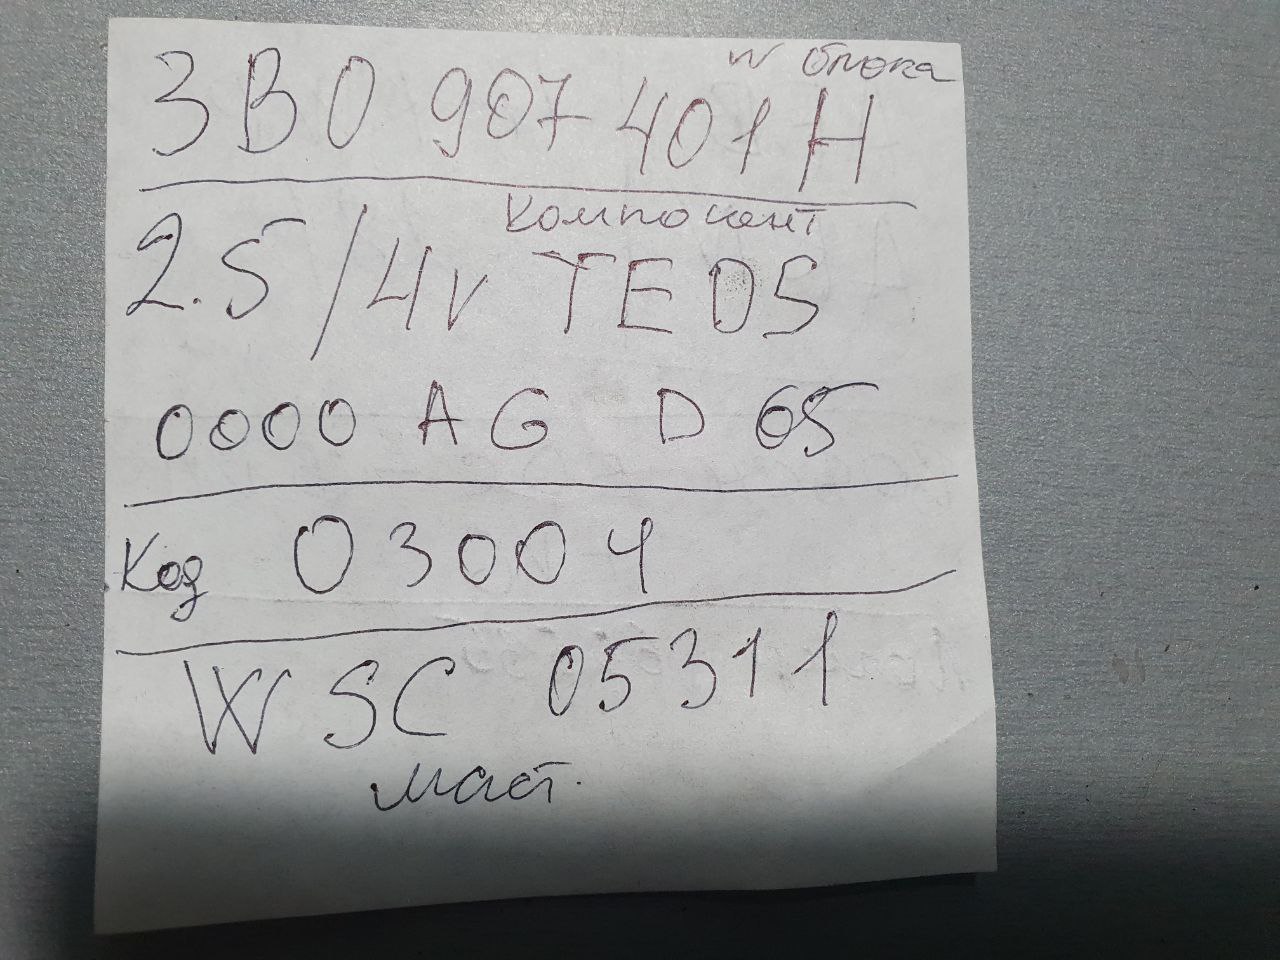 № блока
3B0 907 401 H
компонент
2.5/4v TEDS
0000 AG D 65
Код 03004
WSC 05311
маст.